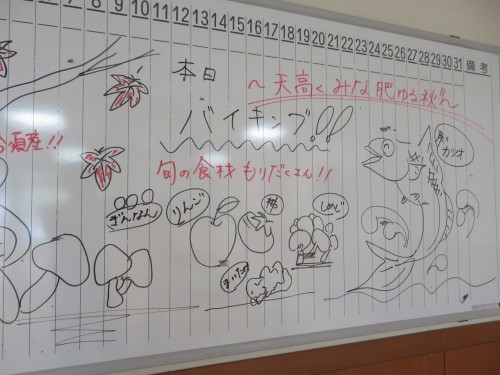 7 8 9 10 11 12 13 14 15 16 17 18 19 20 21 22 23 24 25 26 27 28 29 30 31 備考
本日
～天高くみな肥ゆる秋～
バイキング!!
産!!
旬の食材もりだくさん!!
ぎんなん
りんご
柿
しめじ
まいたけ
カツオ